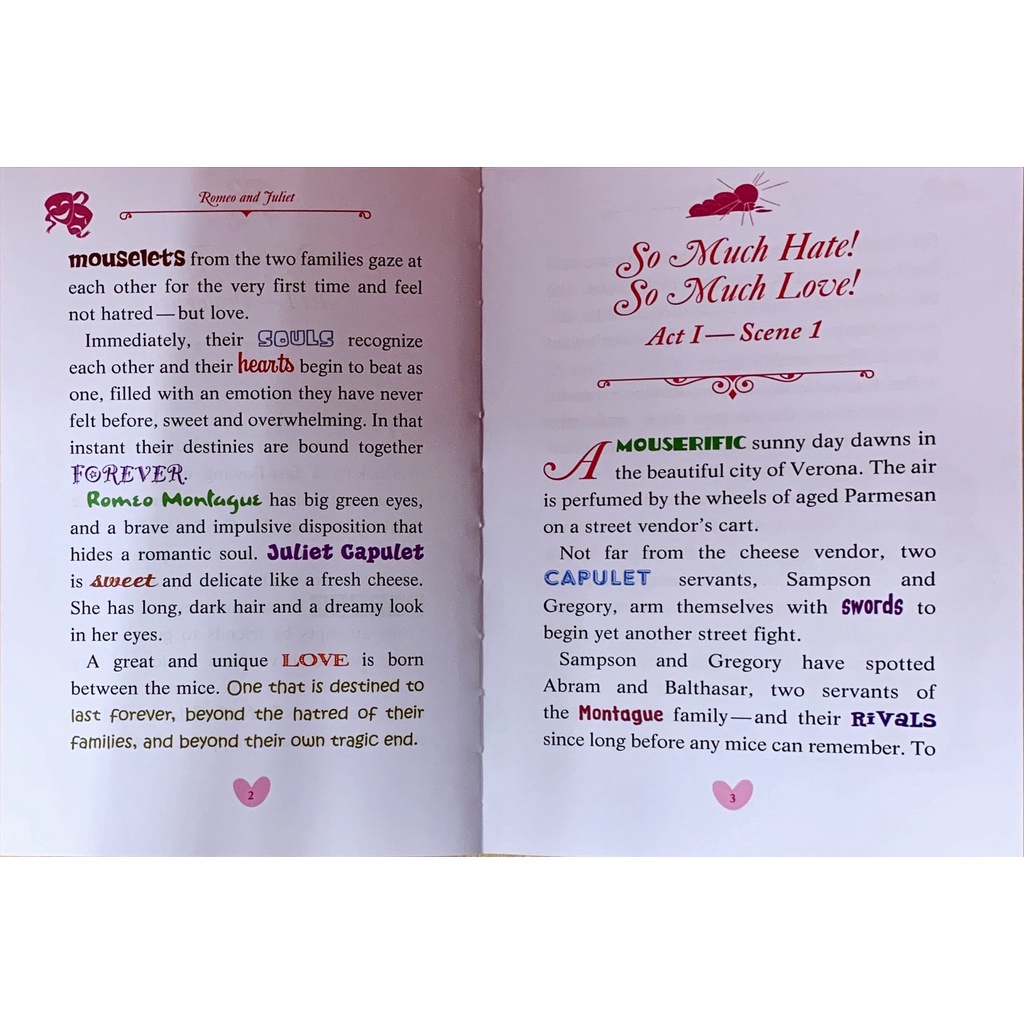 Romeo and Juliet
mouselets from the two families gaze at
each other for the very first time and feel
not hatred—but love.
Immediately, their SOULS recognize
each other and their hearts begin to beat as
one, filled with an emotion they have never
felt before, sweet and overwhelming. In that
instant their destinies are bound together
FOREVER.
Romeo Montague has big green eyes,
and a brave and impulsive disposition that
hides a romantic soul. Juliet Capulet
is sweet and delicate like a fresh cheese.
She has long, dark hair and a dreamy look
in her eyes.
A great and unique LOVE is born
between the mice. One that is destined to
last forever, beyond the hatred of their
families, and beyond their own tragic end.
2
So Much Hate!
So Much Love!
Act I—Scene 1
A MOUSERIFIC sunny day dawns in
the beautiful city of Verona. The air
is perfumed by the wheels of aged Parmesan
on a street vendor's cart.
Not far from the cheese vendor, two
CAPULET servants, Sampson and
Gregory, arm themselves with swords to
begin yet another street fight.
Sampson and Gregory have spotted
Abram and Balthasar, two servants of
the Montague family—and their RiVaLS
since long before any mice can remember. To
3